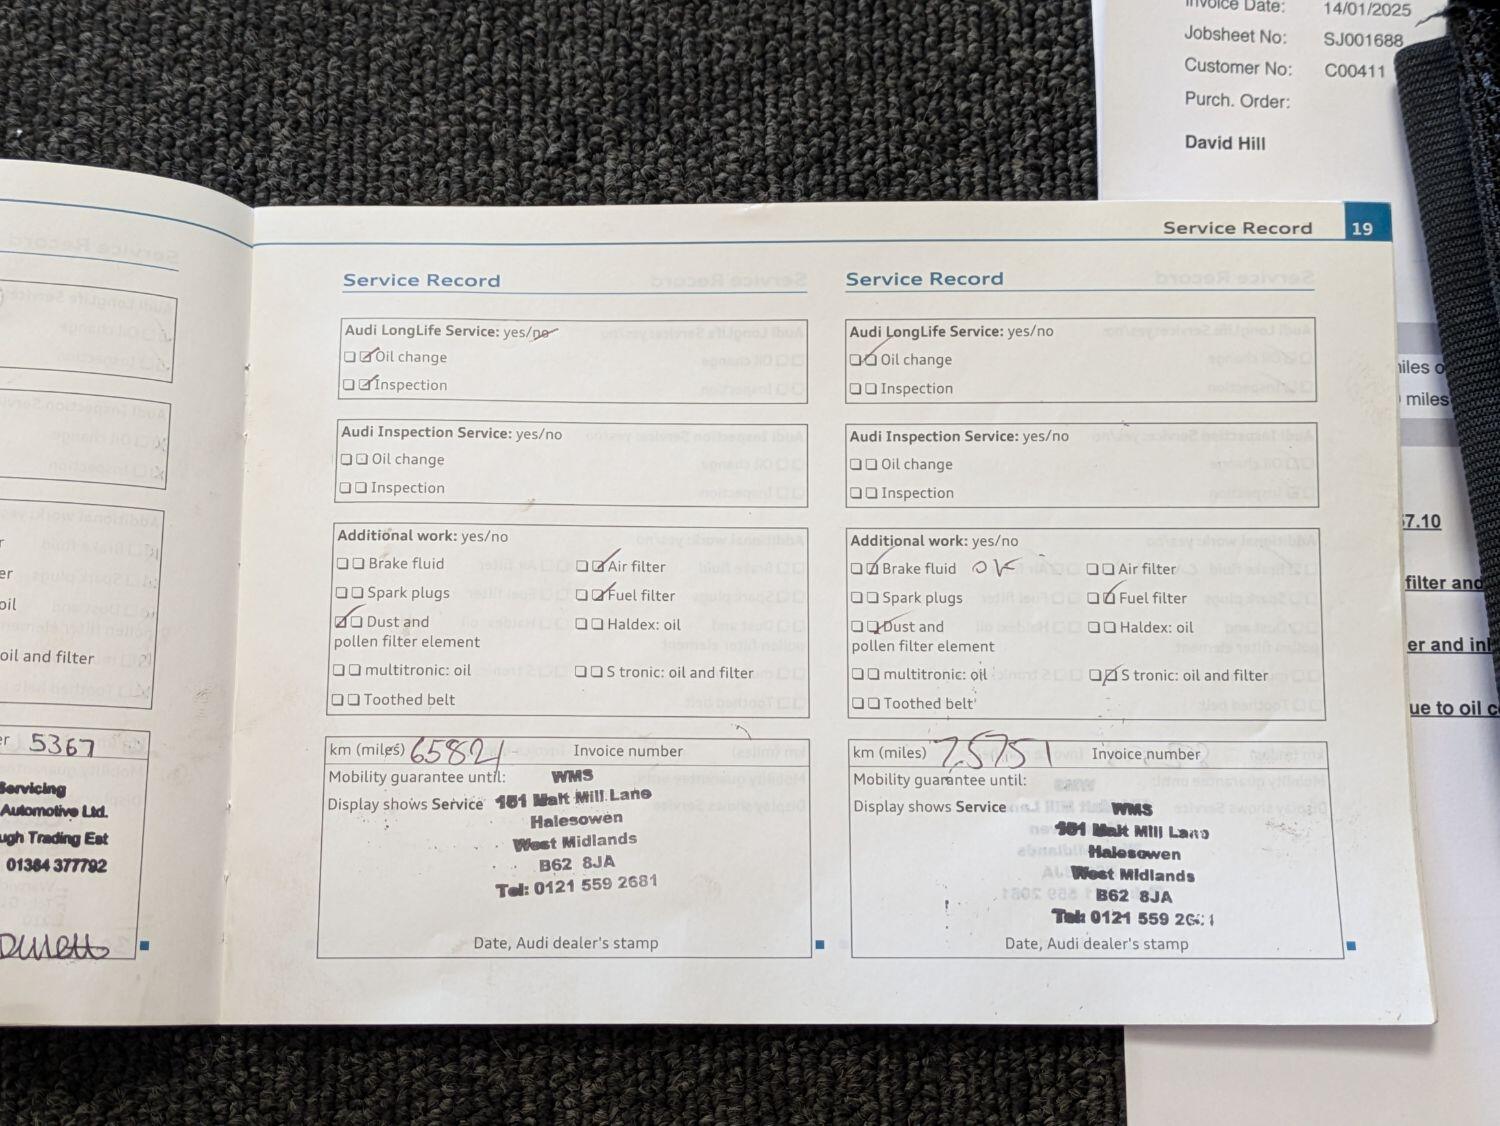 Invoice Date: 14/01/2025
Jobsheet No: SJ001688
Customer No: C00411
Purch. Order:
David Hill
Service Record 19
Service Record
Audi LongLife Service: yes/no
Oil change
Inspection
Audi Inspection Service: yes/no
Oil change
Inspection
Additional work: yes/no
Brake fluid Air filter
Spark plugs Fuel filter
Dust and Haldex: oil
pollen filter element
multitronic: oil S tronic: oil and filter
Toothed belt
km (miles) 65821 Invoice number
Mobility guarantee until:
Display shows Service
WMS
181 Malt Mill Lane
Halesowen
West Midlands
B62 8JA
Tel: 0121 559 2681
Date, Audi dealer's stamp
Service Record
Audi LongLife Service: yes/no
Oil change
Inspection
Audi Inspection Service: yes/no
Oil change
Inspection
Additional work: yes/no
Brake fluid OK Air filter
Spark plugs Fuel filter
Dust and Haldex: oil
pollen filter element
multitronic: oil S tronic: oil and filter
Toothed belt
km (miles) Invoice number
Mobility guarantee until:
Display shows Service
WMS
Malt Mill Lane
Halesowen
West Midlands
B62 8JA
Tel: 0121 559
Date, Audi dealer's stamp
er
oil
oil and filter
r 5367
Servicing
Automotive Ltd.
ugh Trading Est
01384 377792
iles o
miles
57.10
filter and
er and inl
ue to oil c